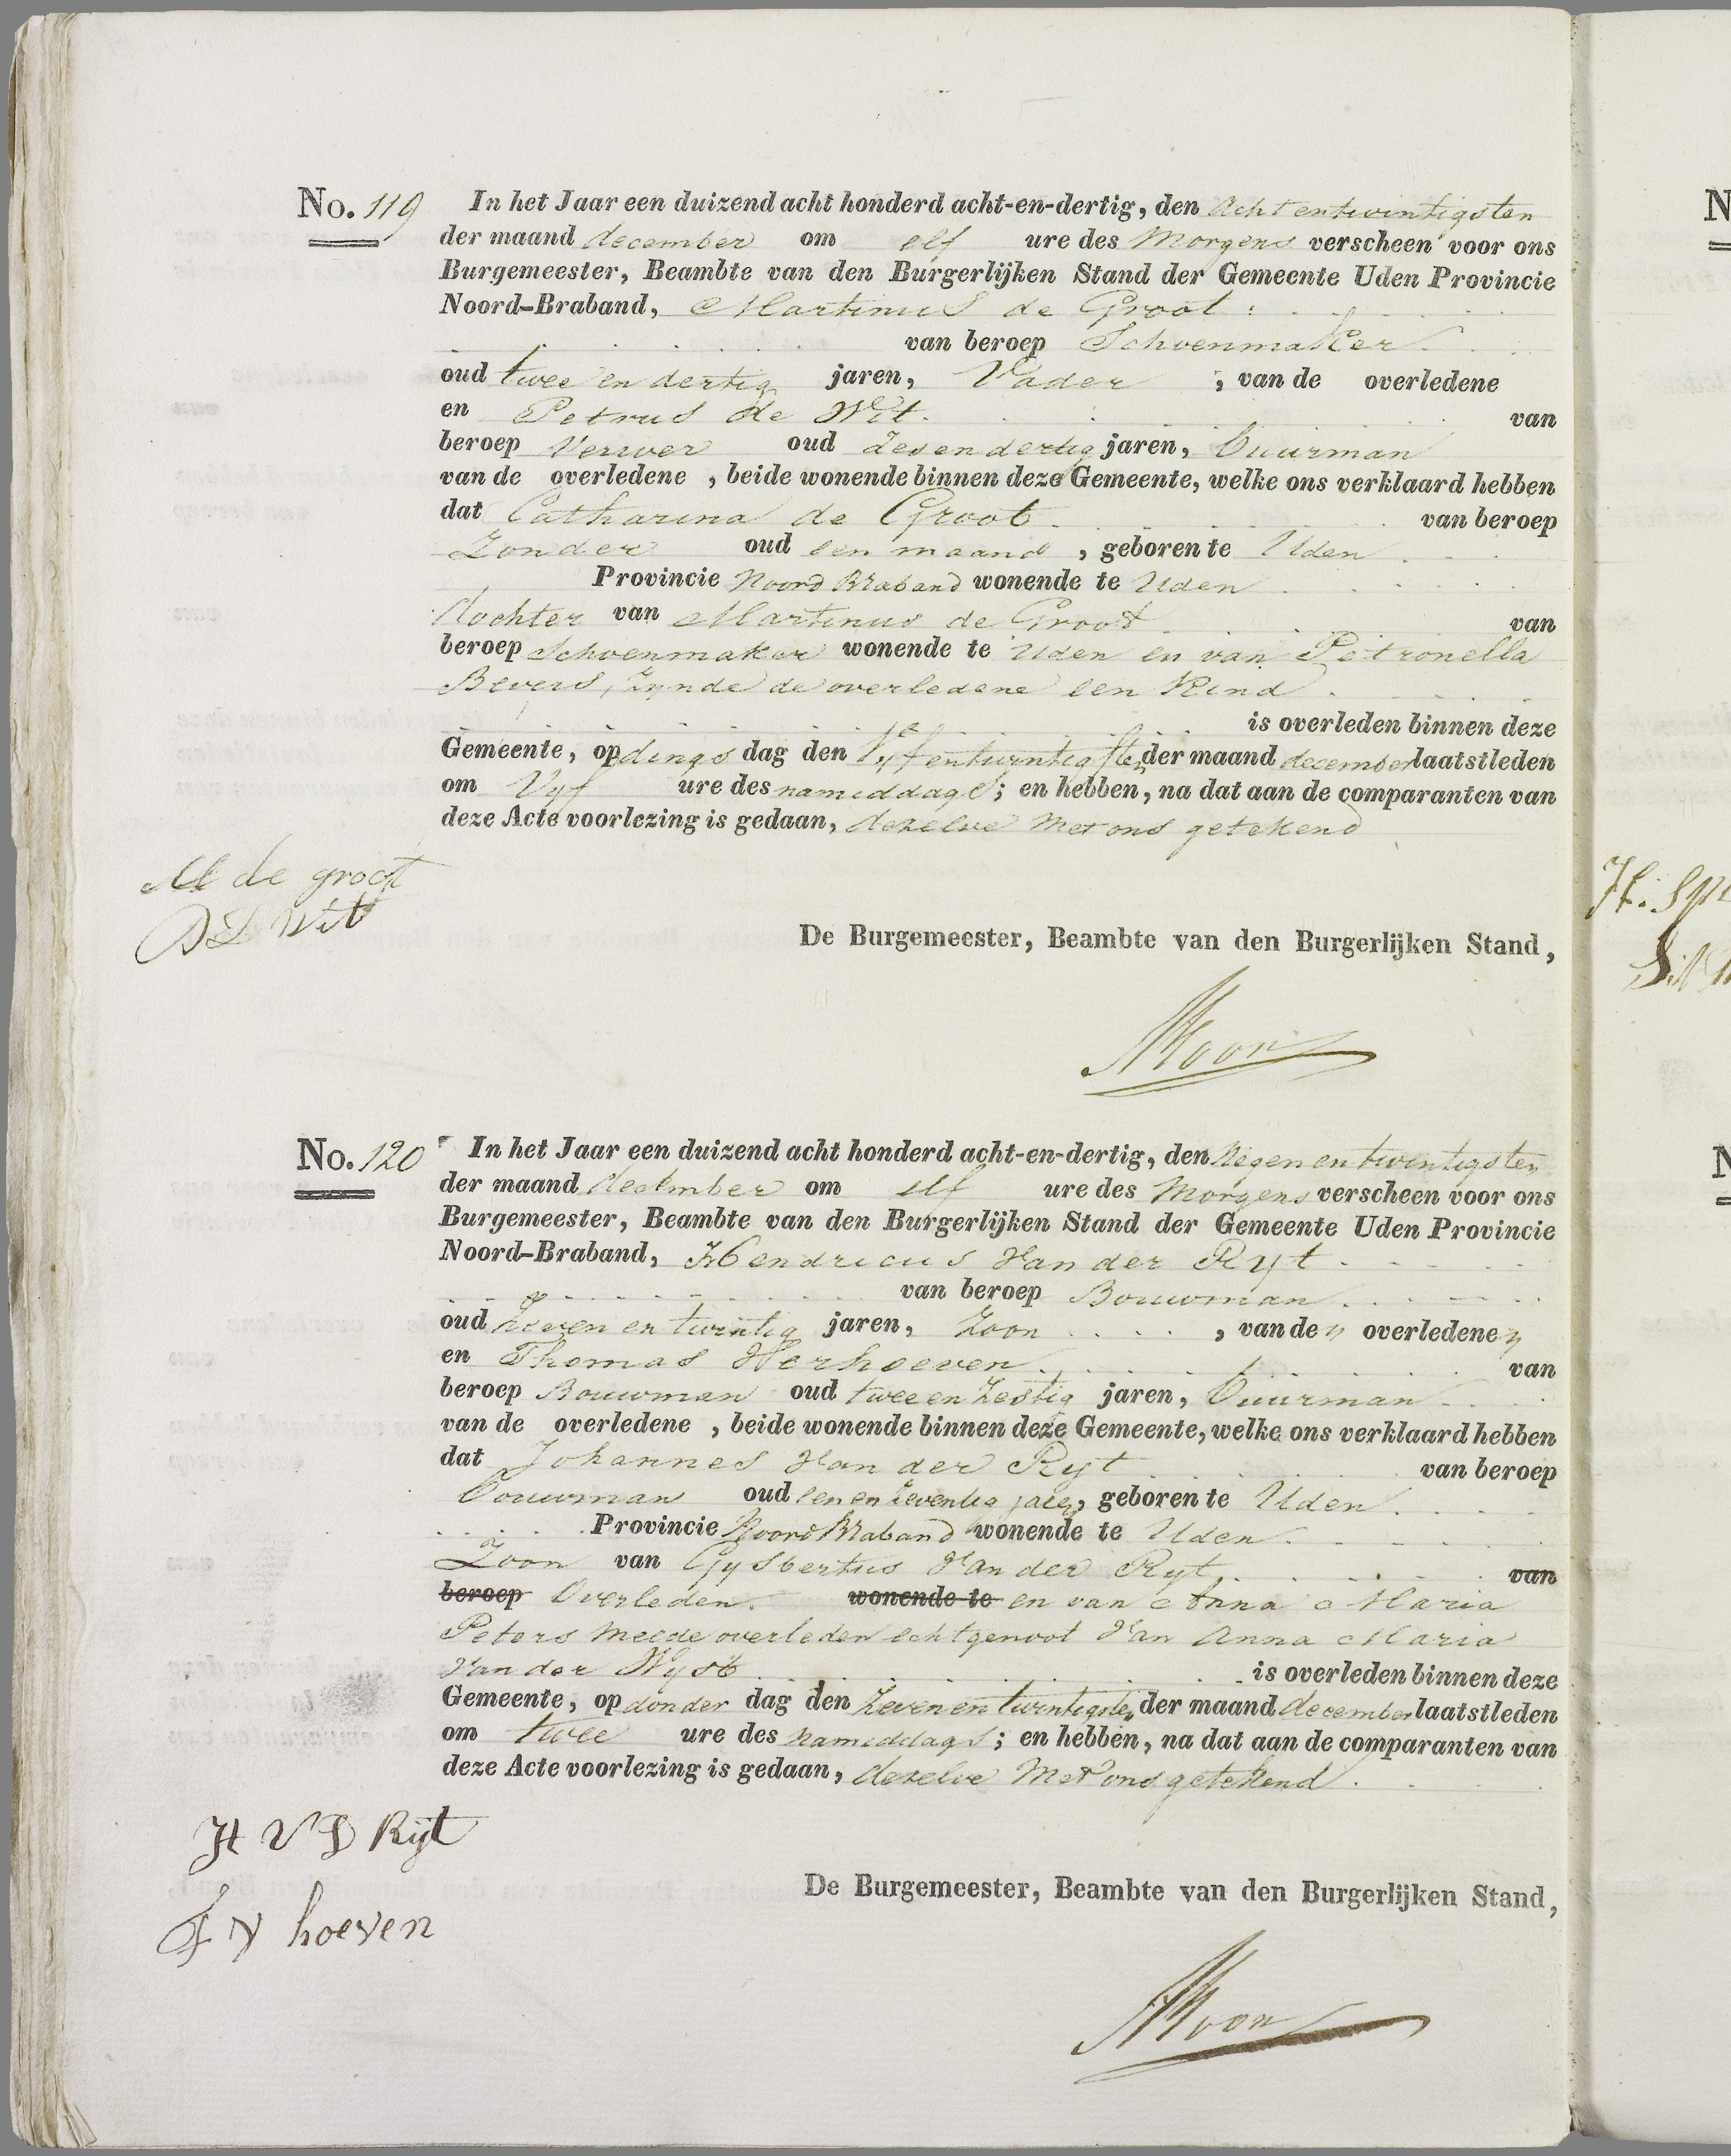 No. 119 In het Jaar een duizend acht honderd acht-en-dertig, den Achtentwintigsten
der maand december om elf ure des Morgens verscheen voor ons
Burgemeester, Beambte van den Burgerlijken Stand der Gemeente Uden Provincie
Noord-Braband, Martinus de Groot
van beroep Schoenmaker
oud twee en dertig jaren, Vader, van de overledene
en Petrus de Wit van
beroep Verwer oud Zesendertig jaren, Buurman
van de overledene, beide wonende binnen deze Gemeente, welke ons verklaard hebben
dat Catharina de Groot van beroep
Zonder oud een maand, geboren te Uden
Provincie Noord Braband wonende te Uden
dochter van Martinus de Groot van
beroep Schoenmaker wonende te Uden en van Petronella
Bevers, Zynde de overledene een Kind
is overleden binnen deze
Gemeente, op dings dag den Vyf entwintigsten der maand december laatstleden
om Vyf ure des namiddags; en hebben, na dat aan de comparanten van
deze Acte voorlezing is gedaan, dezelve Met ons getekend
M de groot
De Burgemeester, Beambte van den Burgerlijken Stand,
No. 120 In het Jaar een duizend acht honderd acht-en-dertig, den Negen en twintigsten
der maand december om elf ure des Morgens verscheen voor ons
Burgemeester, Beambte van den Burgerlijken Stand der Gemeente Uden Provincie
Noord-Braband, Hendricus Van der Ryt
van beroep Bouwman
oud Zeven en twintig jaren, Zoon, van den overledenen
en Thomas Verhoeven van
beroep Bouwman oud twee en Zestig jaren, Buurman
van de overledene, beide wonende binnen deze Gemeente, welke ons verklaard hebben
dat Johannes Van der Ryt van beroep
Bouwman oud een en Zeventig jaren, geboren te Uden
Provincie Noord Braband wonende te Uden
Zoon van Gysbertus Van der Ryt van
beroep Overleden wonende te en van Anna Maria
Peters Meede overleden echtgenoot Van Anna Maria
Van der Wyst is overleden binnen deze
Gemeente, op donder dag den Zeven en twintigsten der maand december laatstleden
om twee ure des Namiddags; en hebben, na dat aan de comparanten van
deze Acte voorlezing is gedaan, dezelve Met ons getekend
H V D Rijt
De Burgemeester, Beambte van den Burgerlijken Stand,
hoeven